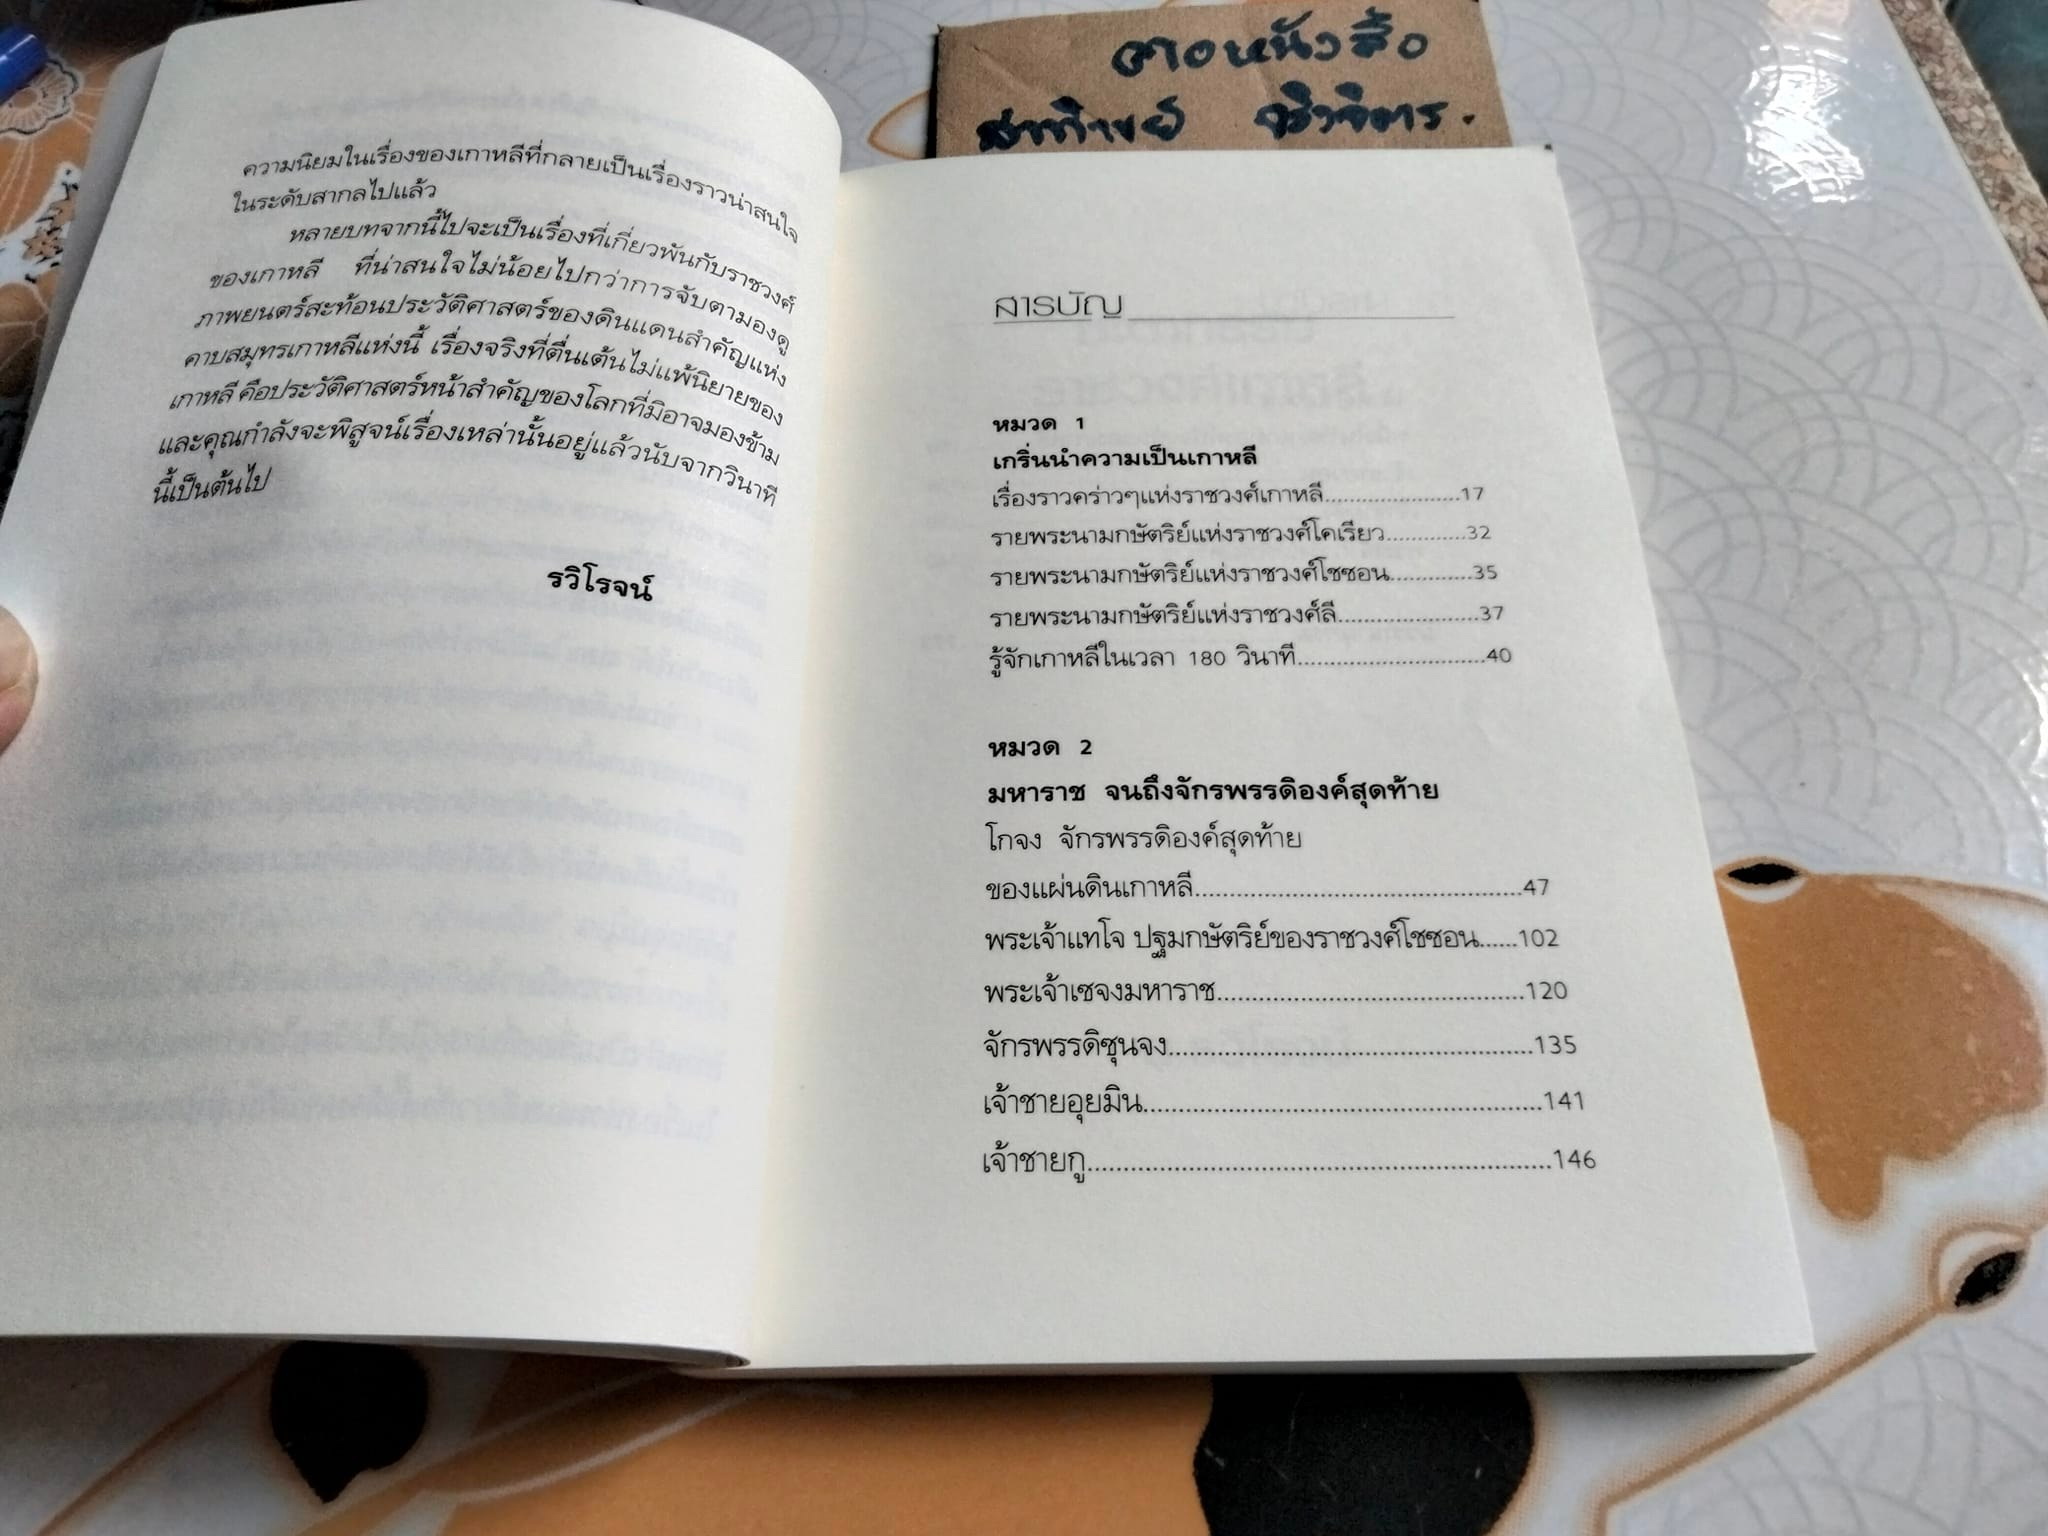 ความนิยมในเรื่องของเกาหลีที่กลายเป็นเรื่องราวน่าสนใจ
ในระดับสากลไปแล้ว
หลายบทจากนี้ไปจะเป็นเรื่องที่เกี่ยวพันกับราชวงศ์
ของเกาหลี ที่น่าสนใจไม่น้อยไปกว่าการจับตามองดู
ภาพยนตร์สะท้อนประวัติศาสตร์ของดินแดนสำคัญแห่ง
คาบสมุทรเกาหลีแห่งนี้ เรื่องจริงที่ตื่นเต้นไม่แพ้นิยายของ
เกาหลี คือประวัติศาสตร์หน้าสำคัญของโลกที่มิอาจมองข้าม
และคุณกำลังจะพิสูจน์เรื่องเหล่านั้นอยู่แล้วนับจากวินาที
นี้เป็นต้นไป
รวิโรจน์
หนังสือ
สารบัญ
หมวด 1
เกริ่นนำความเป็นเกาหลี
เรื่องราวคร่าวๆแห่งราชวงศ์เกาหลี.......................17
รายพระนามกษัตริย์แห่งราชวงศ์โคเรียว.............32
รายพระนามกษัตริย์แห่งราชวงศ์โชซอน.............35
รายพระนามกษัตริย์แห่งราชวงศ์ลี.......................37
รู้จักเกาหลีในเวลา 180 วินาที..............................40
หมวด 2
มหาราช จนถึงจักรพรรดิองค์สุดท้าย
โกจง จักรพรรดิองค์สุดท้าย
ของแผ่นดินเกาหลี................................................47
พระเจ้าแทโจ ปฐมกษัตริย์ของราชวงศ์โชซอน......102
พระเจ้าเซจงมหาราช.............................................120
จักรพรรดิซุนจง....................................................135
เจ้าชายอุยมิน.......................................................141
เจ้าชายกู..............................................................146